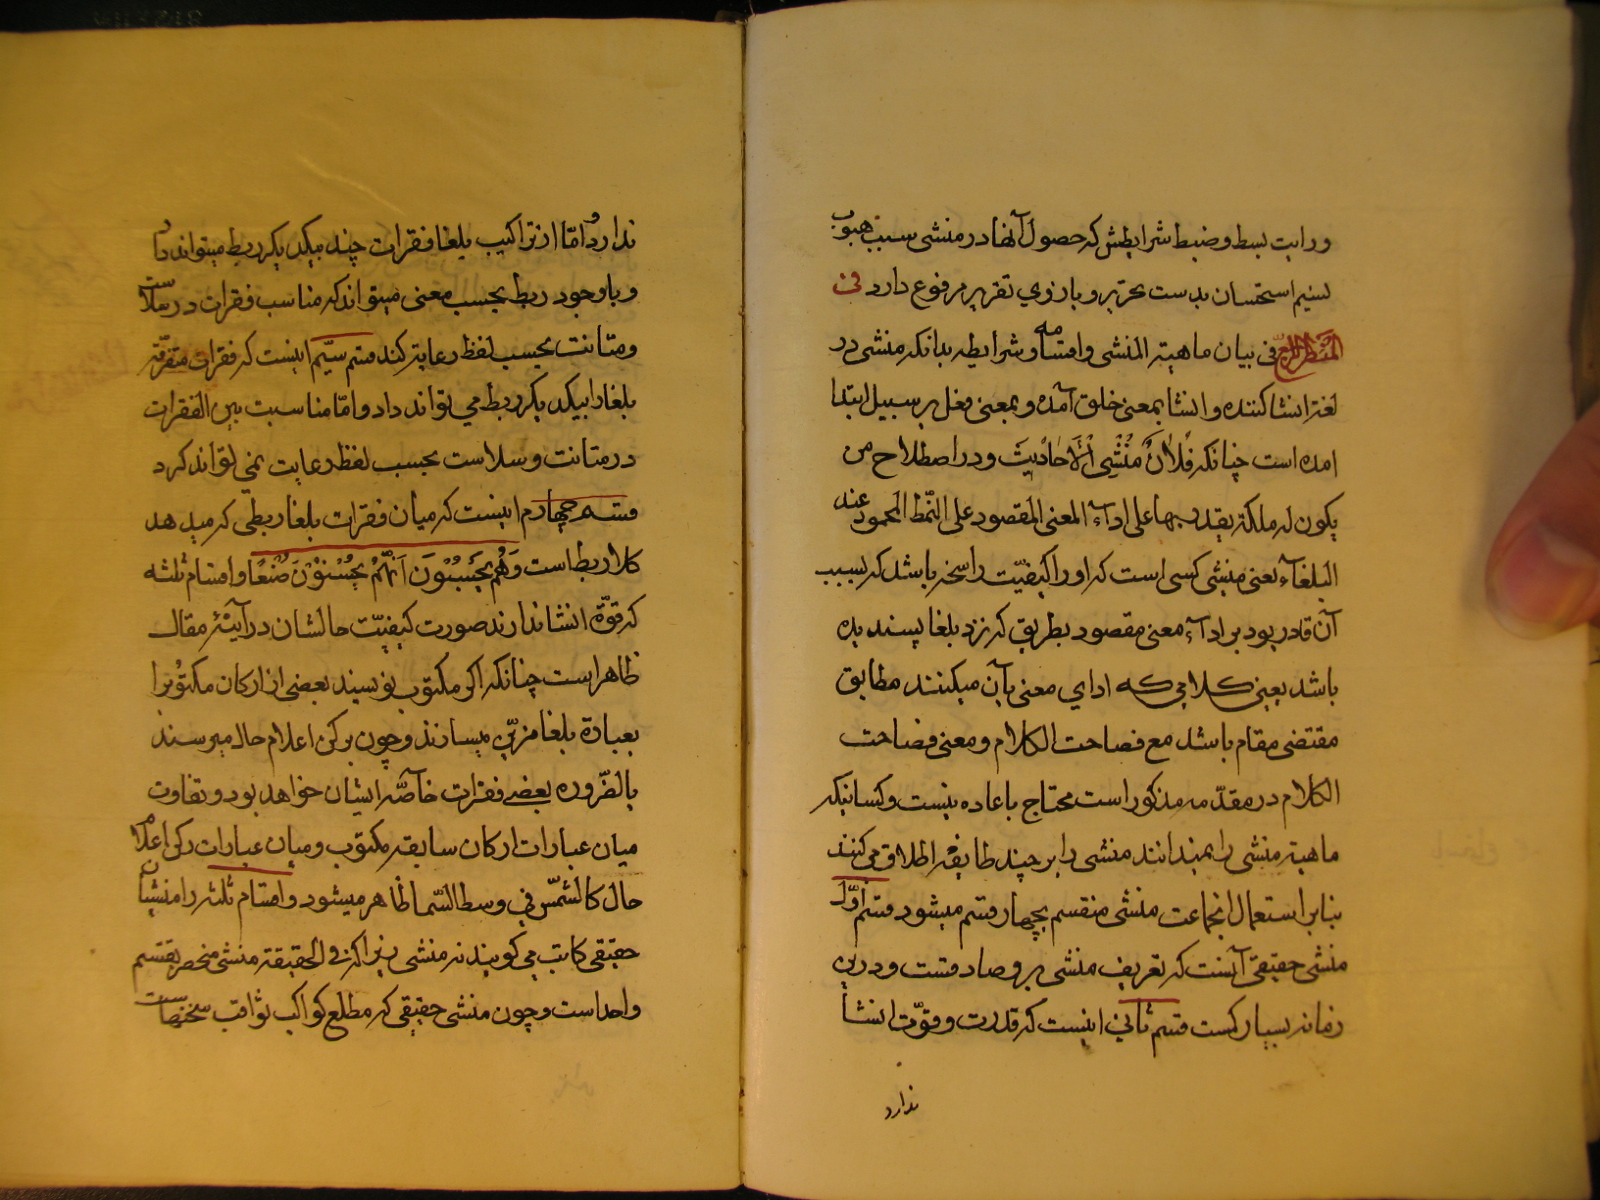 ورایت بسط وضبط شرایطش که حصول آنها در منشی سبب هبوب
نسیم استحسان بدست تحریر و بازوی تقریر مرفوع دارد فی
المنظر الرابع فی بیان ماهیة المنشی واقسامه وشرایطه بدانکه منشی در
لغة انشا کننده و انشا بمعنی خلق آمده و بمعنی فعل بر سبیل ابتدا
امده است چنانکه فُلَانٌ مُنْشِی الْأَحَادِیثَ و در اصطلاح من
یکون له ملکة یقدر بها علی ادآء المعنی المقصود علی النّمط المحمود عند
البلغآء یعنی منشی کسی است که او را کیفیّت راسخه باشد که بسبب
آن قادر بود بر ادآء معنی مقصود بطریق که نزد بلغا پسندیده
باشد یعنی کلامی که ادای معنی بآن میکنند مطابق
مقتضی مقام باشد مع فصاحت الکلام و معنی فصاحت
الکلام در مقدّمه مذکور است محتاج باعاده نیست و کسانیکه
ماهیة منشی را نمیدانند منشی را بر چند طایفه اطلاق می کنند
بنابر استعمال انجماعت منشی منقسم بچهار قسم میشود قسم اوّل
منشی حقیقی آنست که تعریف منشی بر و صادقست و درین
زمانه بسیار کمست قسم ثانی اینست که قدرت و قوّت انشا
ندارد
ندارد و امّا از تراکیب بلغا فقرات چند بیکدیکر ربط میتواند داد
و باوجود ربط بحسب معنی میتواند که مناسب فقرات در سلاست
و متانت بحسب لفظ رعایة کند قسم سیّم اینست که فقرای متفرّقۀ
بلغا را بیکدیکر ربط می تواند داد و امّا مناسبت بین الفقرات
در متانت و سلاست بحسب لفظ رعایت نمی تواند کرد
قسم چهارم اینست که میان فقرات بلغا ربطی که میدهد
کلا ربط است وَهُمْ یَحْسَبُوْنَ اَنَّهُمْ یُحْسِنُوْنَ صُنْعًا و اقسام ثلثه
که قوّة انشا ندارند صورت کیفیّت حالشان در آیینۀ مقال
ظاهر است چنانکه اکر مکتوب نویسند بعضی از ارکان مکتوب را
بعبارة بلغا مزیّن میسازند و چون برکن اعلام حال میرسند
بالضّروره بعضی فقرات خاصّه ایشان خواهد بود و تفاوت
میان عبارات ارکان سابقه مکتوب و میان عبارات رکن اعلام
حال کالشمس فی وسط السّما ظاهر میشود و اقسام ثلثه را منشیان
حقیقی کاتب می کویند نه منشی زیرا که فی الحقیقة منشی منحصر بقسم
واحد است و چون منشی حقیقی که مطلع کواکب ثواقب مختصّات